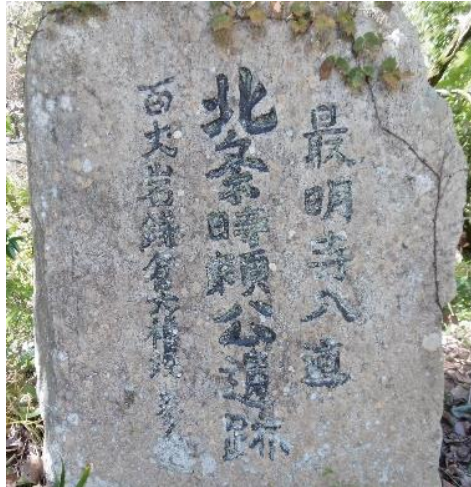 最明寺入道
北条時頼公遺跡
百丈岩鎌倉大権現